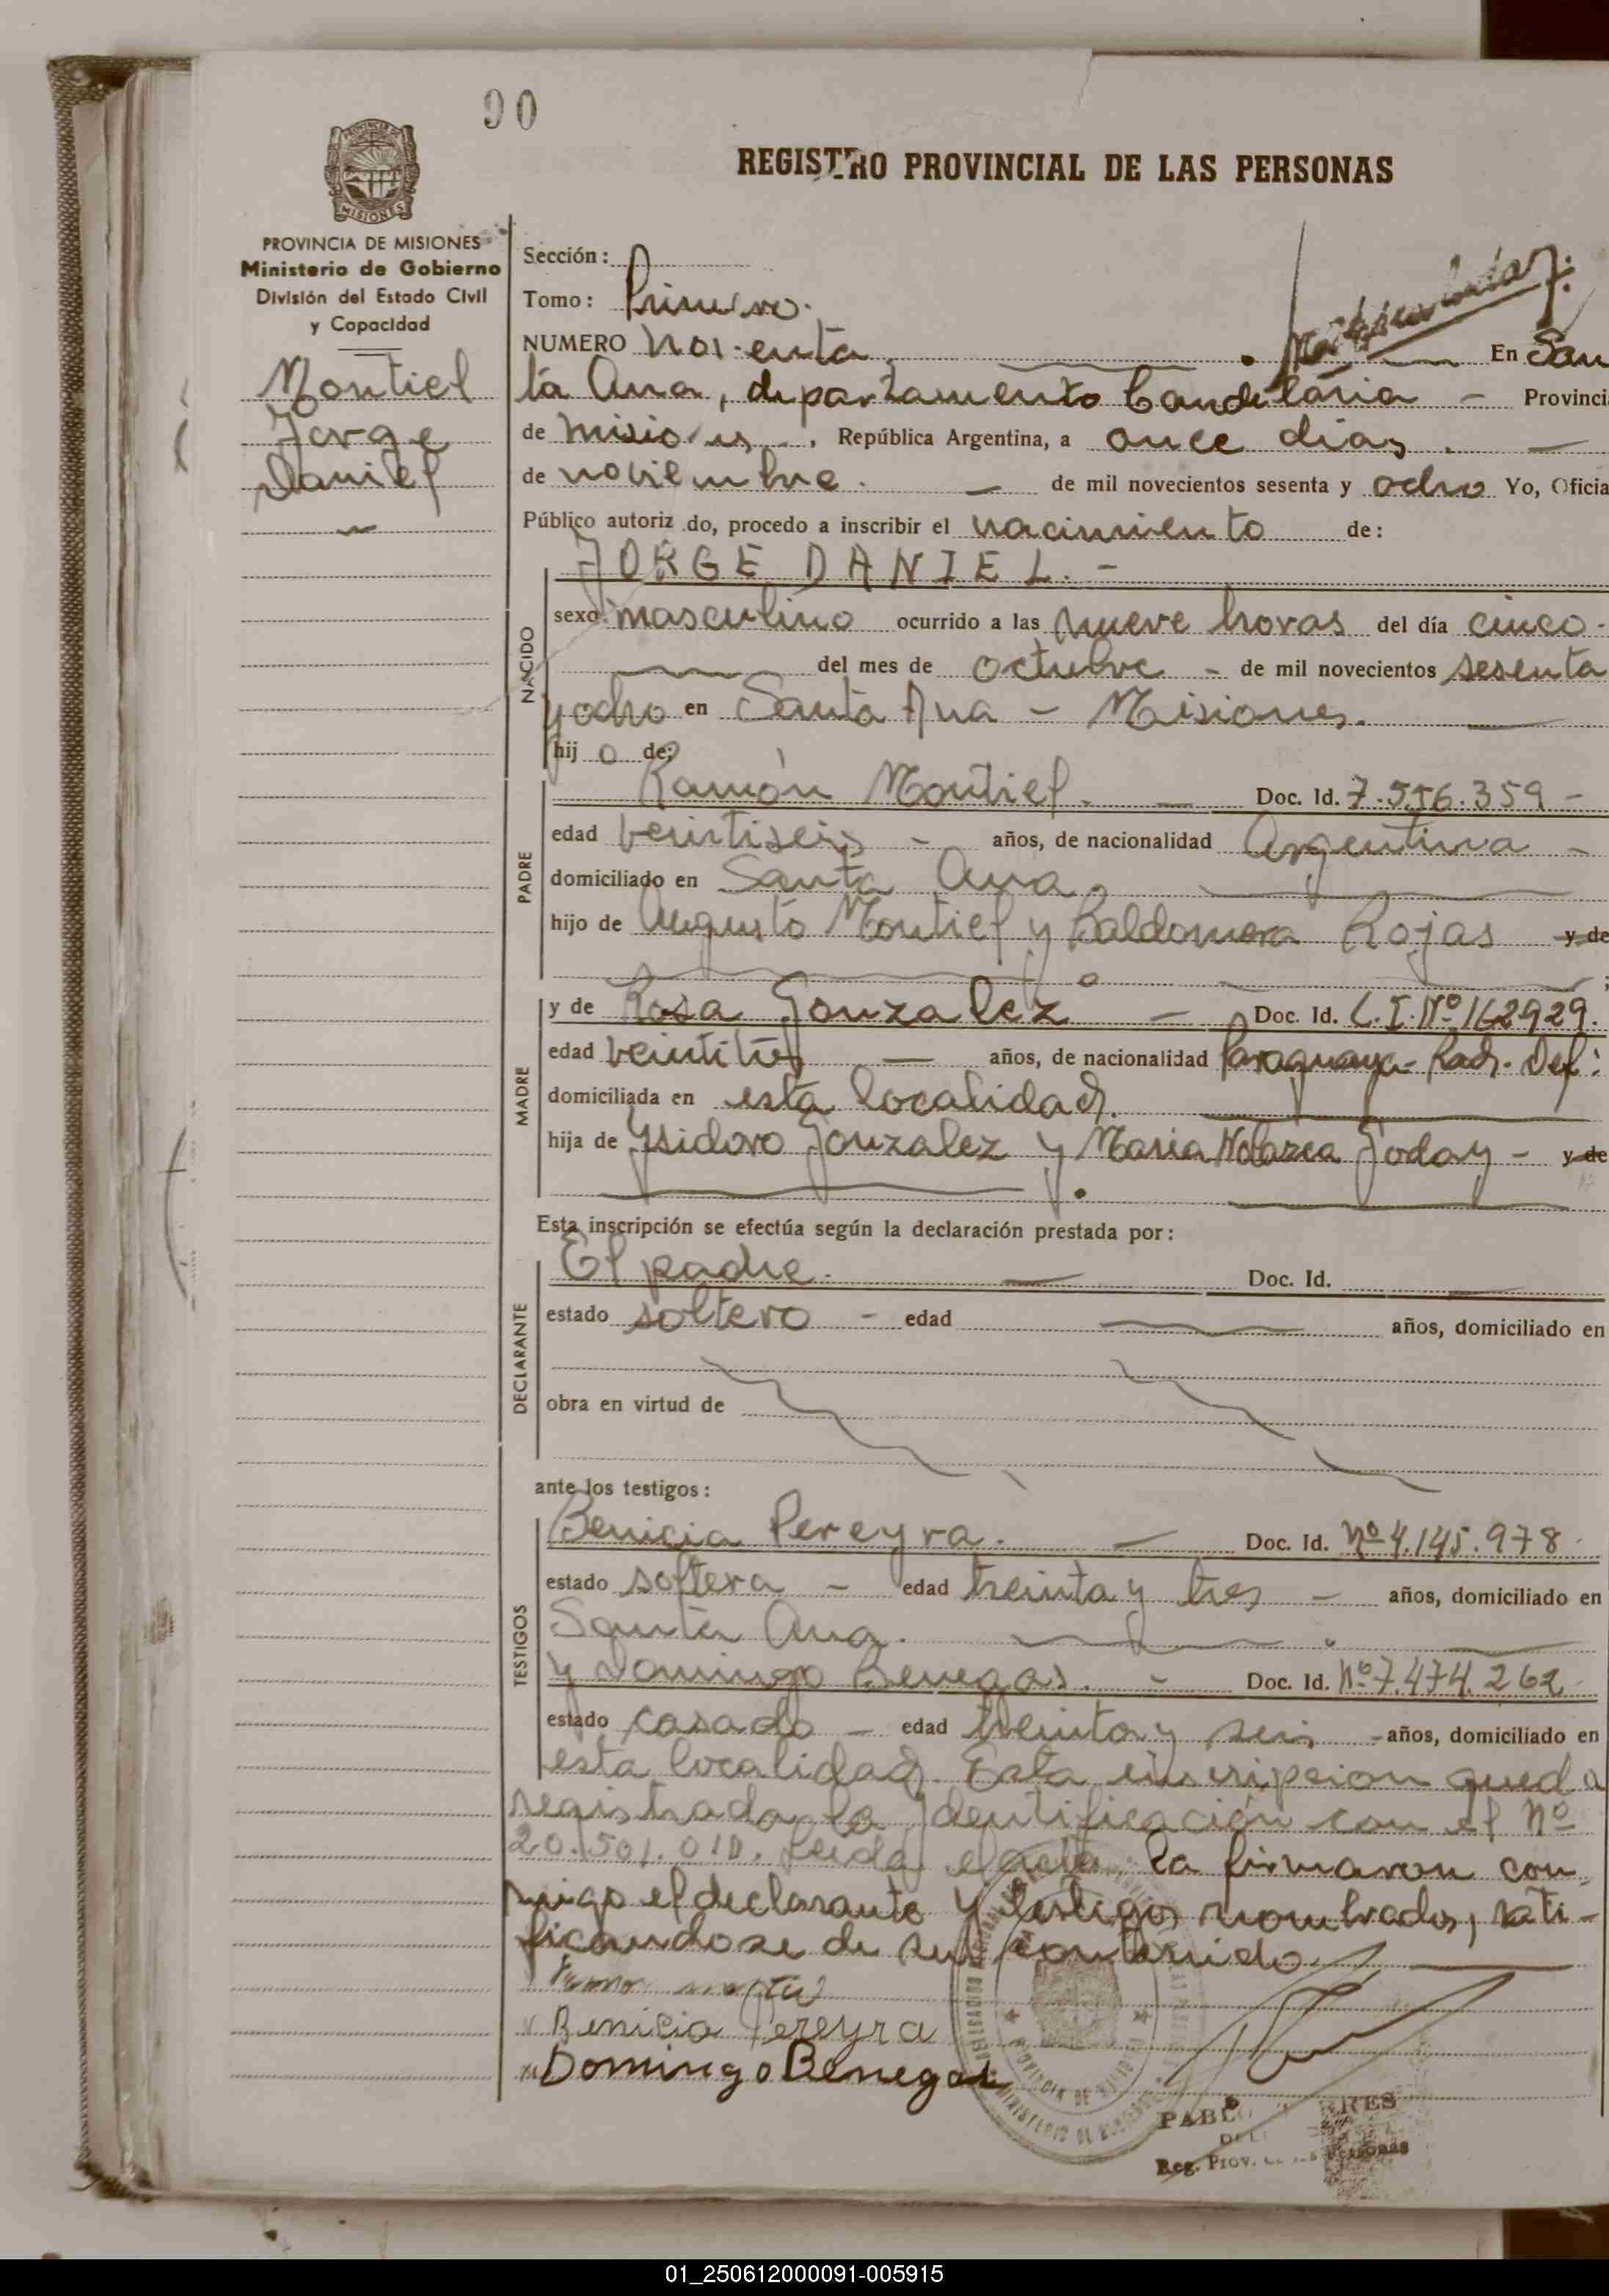 90
REGISTRO PROVINCIAL DE LAS PERSONAS
PROVINCIA DE MISIONES
Ministerio de Gobierno
División del Estado Civil
y Capacidad
Montiel
Jorge
Daniel
Sección:
Tomo: Primero.
NUMERO Noventa. En San
ta Ana, departamento Candelaria - Provinci
de Misiones. República Argentina, a once días.
de noviembre. de mil novecientos sesenta y ocho Yo, Oficia
Público autoriz do, procedo a inscribir el nacimiento de:
JORGE DANIEL. -
NACIDO
sexo masculino ocurrido a las nueve horas del día cinco -
del mes de octubre - de mil novecientos sesenta
y ocho en Santa Ana - Misiones.
hij o de:
PADRE
Ramón Montiel. Doc. Id. 7.556.359 -
edad veintiseis - años, de nacionalidad Argentina -
domiciliado en Santa Ana.
hijo de Augusto Montiel y Baldomera Rojas y de
MADRE
y de Rosa Gonzalez - Doc. Id. C.I. Nº 162929.
edad veintitres años, de nacionalidad Paraguaya - Rad. Def:
domiciliada en esta localidad.
hija de Ysidoro Gonzalez y Maria Godoy - y de
Esta inscripción se efectúa según la declaración prestada por:
DECLARANTE
El padre. Doc. Id.
estado soltero - edad años, domiciliado en
obra en virtud de
ante los testigos:
TESTIGOS
Benicia Pereyra. Doc. Id. Nº 4.145.978
estado soltera - edad treinta y tres - años, domiciliado en
Santa Ana.
y Domingo Benegas. - Doc. Id. Nº 7.474.262
estado casado - edad treinta y seis - años, domiciliado en
esta localidad. Esta inscripcion queda
registrada la Identificación con el Nº
20.501.010. Leida el acta la firmaron con
migo el declarante y testigos nombrados, rati-
ficandose de su contenido
Benicia Pereyra
Domingo Benegas
PABLO RRES
Reg. Prov. Personas
01_250612000091-005915